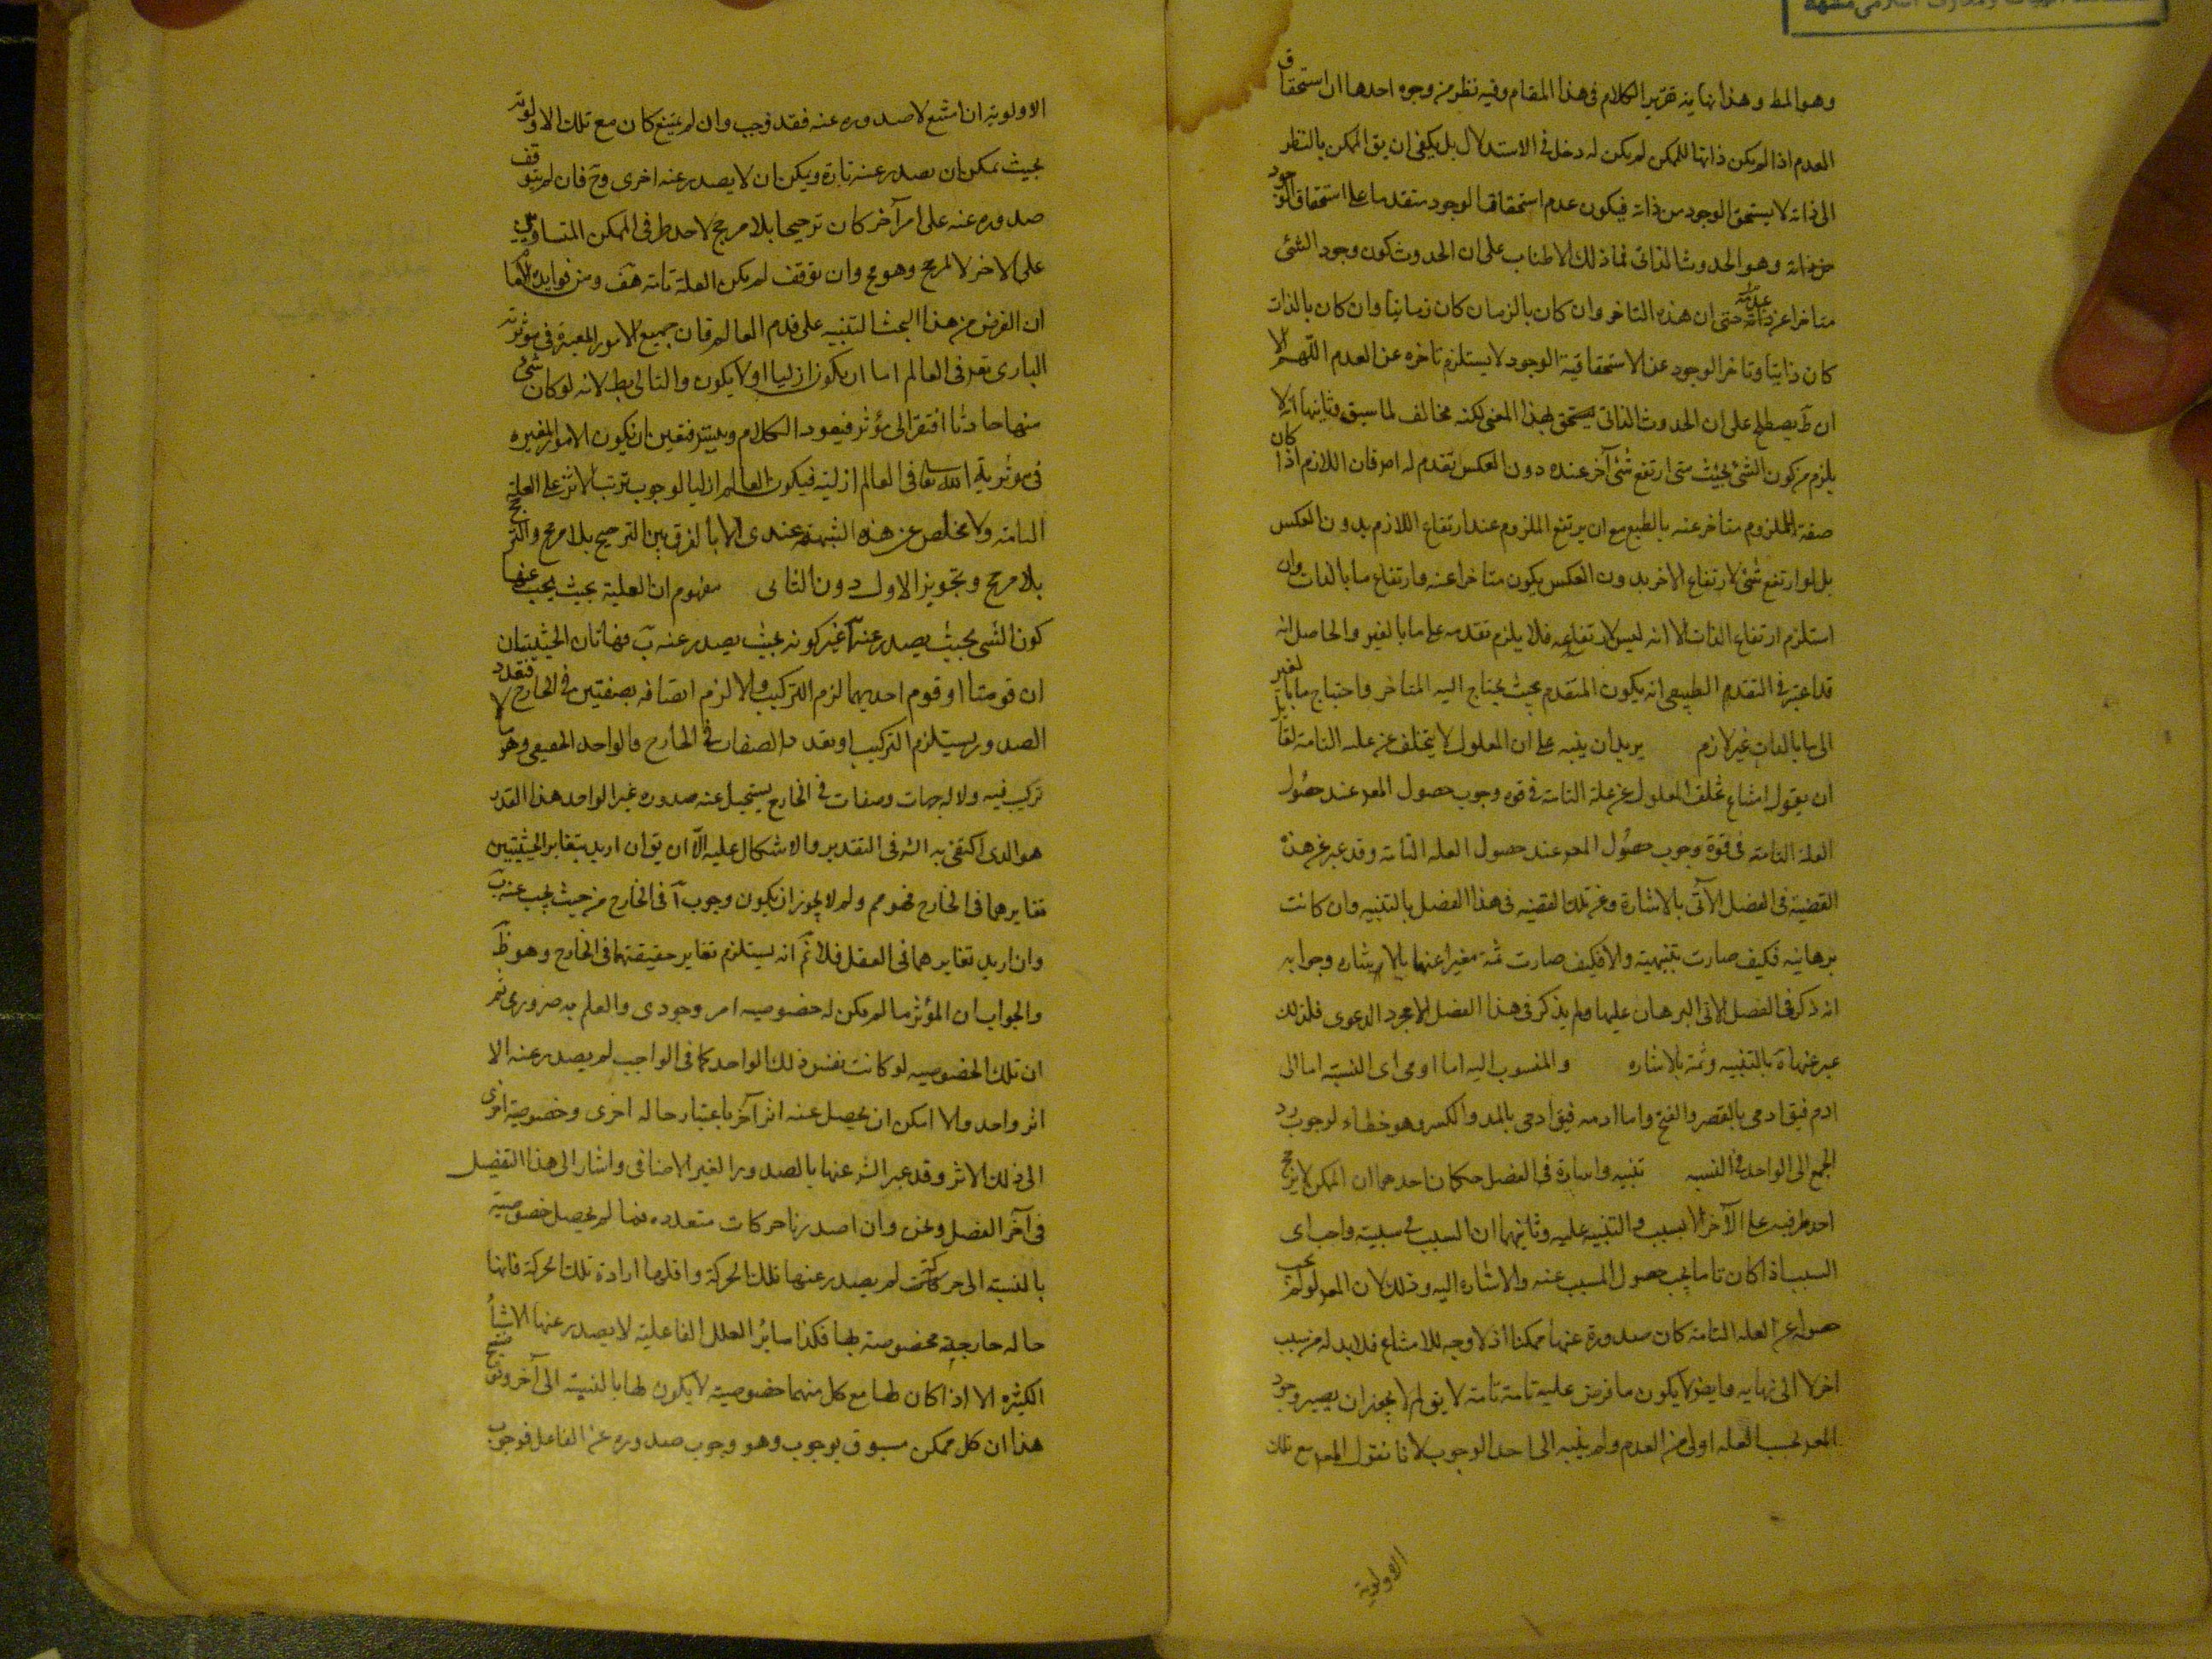 وهو المط وهذا نهاية تقرير الكلام فى هذا المقام وفيه نظر من وجوه احدها ان استحقاق
العدم اذا لم يكن ذاتيا للممكن لم يكن له دخل فى الاستدلال بل يكفى ان يق الممكن بالنظر
الى ذاته لا يستحق الوجود من ذاته فيكون عدم استحقاقها الوجود متقدما على استحقاق الوجود
من ذاته وهو الحدوث الذاتى فما ذلك الاطناب على ان الحدوث كون وجود الشئ
متاخرا عن عدمه حتى ان هذه التاخر وان كان بالزمان كان زمانيا وان كان بالذات
كان ذاتيا وتاخر الوجود عن لا استحقاقية الوجود لا يستلزم تاخره عن العدم اللهم الا
ان يصطلح على ان الحدوث الذاتى يتحقق بهذا المعنى لكنه مخالف لما سبق وثانيها انه لا
يلزم من كون الشئ بحيث متى ارتفع شئ آخر عنده دون العكس تقدم له امر فان اللازم اذا كان
صفة للملزوم متاخر عنه بالطبع مع ان يرتفع الملزوم عند ارتفاع اللازم بدون العكس
بل لو ارتفع شئ لارتفاع الاخر بدون العكس يكون متاخرا عنه وارتفاع ما بالذات وان
استلزم ارتفاع الذات الا انه ليس لارتفاعه فلا يلزم تقدمه على ما بالغير والحاصل انه
قد اعتبر فى التقدم الطبيعى انه يكون المتقدم بحيث يحتاج اليه المتاخر واحتياج ما بالغير
الى ما بالذات غير لازم يريد ان ينبه على ان المعلول لا يتخلف عن علته التامة لقايل
ان يقول امتناع تخلف المعلول عن علة التامة فى قوة وجوب حصول المعو عند حصول
العلة التامة فى قوة وجوب حصول المعو عند حصول العلة التامة وقد عبر عن هذه
القضية فى الفصل الآتى بالاشارة وعن تلك القضية فى هذا الفصل بالتنبيه وان كانت
برهانية فكيف صارت تنبيهية والا فكيف صارت ثمة معبرا عنها بالاشارة وجوابه
انه ذكر فى الفصل الاتى البرهان عليها ولم يذكر فى هذا الفصل الا مجرد الدعوى فلذلك
عبر عنها بالتنبيه وثمة بالاشارة والمنسوب اليه اما ادمى اى النسبة اما الى
ادم فيق ادمى بالقصر والفتح واما ادمه فيق ادمى بالمد والكسر وهو خطاء لوجوب رد
الجمع الى الواحد فى النسبة تنبيه واشارة فى الفصل حكمان احدهما ان الممكن لا يترجح
احد طرفيه على الآخر الا بسبب والتنبيه عليه وثانيهما ان السبب فى سببيته واجب اى
السبب اذا كان تاما يجب حصول المسبب عنه والاشارة اليه وذلك لان المعو لو لم يجب
حصوله عن العلة التامة كان صدوره عنها ممكنا اذ لا وجه للامتناع فلا بد له من سبب
اخر لا الى نهاية وايضا لا يكون ما فرض علية تامة تامة لا يق لم لا يجوز ان يصير وجود
المعو بحسب العلة اولى من العدم ولم ينته الى احد الوجوب لانا نقول المعو مع تلك
الاولوية
الاولوية ان امتنع لا صدوره عنه فقد وجب وان لم يمتنع كان مع تلك الاولوية
بحيث يمكن ان يصدر عنه تارة ويمكن ان لا يصدر عنه اخرى وح فان لم يتوقف
صدوره عنه على امر آخر كان ترجيحا بلا مرجح لاحد طرفى الممكن المتساويين
على الاخر لا لمرجح وهو مح وان توقف لم يكن العلة تامة هف ومن فوايد
ان الغرض من هذا البحث التنبيه على قدم العالم فان جميع الامور المعتبرة فى موثرية
البارى تعه فى العالم اما ان يكون ازليا او لا يكون والتالى بط لانه لو كان شئ
منها حادثا افتقر الى مؤثر فيعود الكلام ويتس فتعين ان يكون الامور المعتبرة
فى موثرية الله تعا فى العالم ازلية فيكون العالم ازليا لوجوب ترتب الاثر على العلة
التامة ولا مخلص عن هذه الشبهة عندى الا بالفرق بين الترجيح بلا مرجح والترجح
بلا مرجح وتجويز الاول دون الثانى مفهوم ان العلية بحيث يجب عنها
كون الشئ بحيث يصدر عنه آ غير كونه بحيث يصدر عنه ب فهاتان الحيثيتان
ان قومتا او قوم احديهما لزم التركيب والا لزم اتصافه بصفتين فى الخارج فتعدد
الصدور يستلزم التركيب او تعدد الصفات فى الخارج فالواحد الحقيقى وهو ما لا
تركيب فيه ولا له جهات وصفات فى الخارج يستحيل عنه صدوره غير الواحد هذا القدر
هو الذى اكتفى به الش فى التقدير والاشكال عليه الا ان يق ان اريد بتغاير الحيثيتين
تغايرهما فى الخارج فهو مم ولم لا يجوز ان يكون وجوب آ فى الخارج من حيث يجب عنه ب
وان اريد تغايرهما فى العقل فلا نم انه يستلزم تغاير حقيقتهما فى الخارج وهو ظ
والجواب ان المؤثر ما لم يكن له خصوصيه امر وجودى والعلم به ضرورى ثم
ان تلك الخصوصيه لو كانت نفس ذلك الواحد كما فى الواجب لم يصدر عنه الا
اثر واحد والا امكن ان يحصل عنه اثر آخر باعتبار حاله اخرى وخصوصية اخرى
الى ذلك الاثر وقد عبر الش عنها بالصدور الغير الاضافى واشار الى هذا التفصيل
فى آخر الفصل ونحن وان اصدرنا حركات متعدده فما لم يحصل خصوصية
بالنسبة الى حركة لم يصدر عنها تلك الحركة واقلها ارادة تلك الحركة فانها
حاله خارجية مخصوصة بها فكذا سائر العلل الفاعلية لا يصدر عنها الاشيا
الكثيره الا اذا كان لها مع كل منهما خصوصية لا يكون لها بالنسبة الى آخر وتوضيح
هذا ان كل ممكن مسبوق بوجوب وهو وجوب صدوره عن الفاعل فوجوب